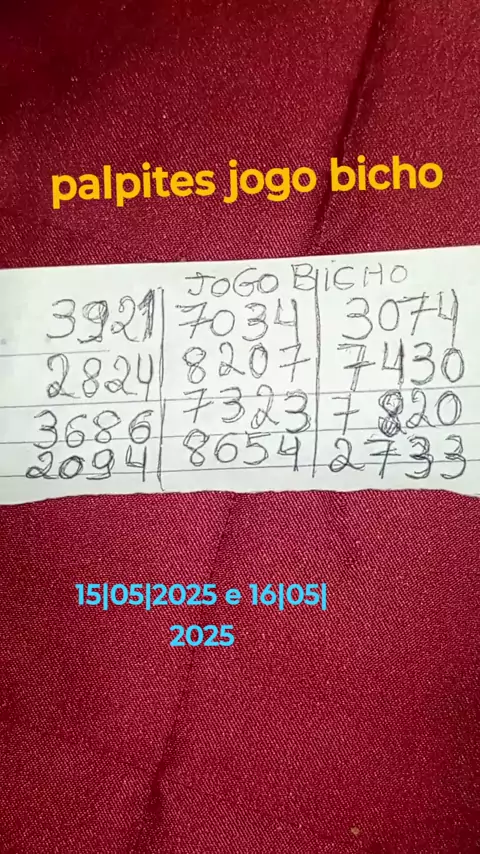 palpites jogo bicho
JOGO BICHO
3921 7034 3074
2824 8207 7430
3686 7323 7820
2094 8654 2733
15|05|2025 e 16|05|
2025